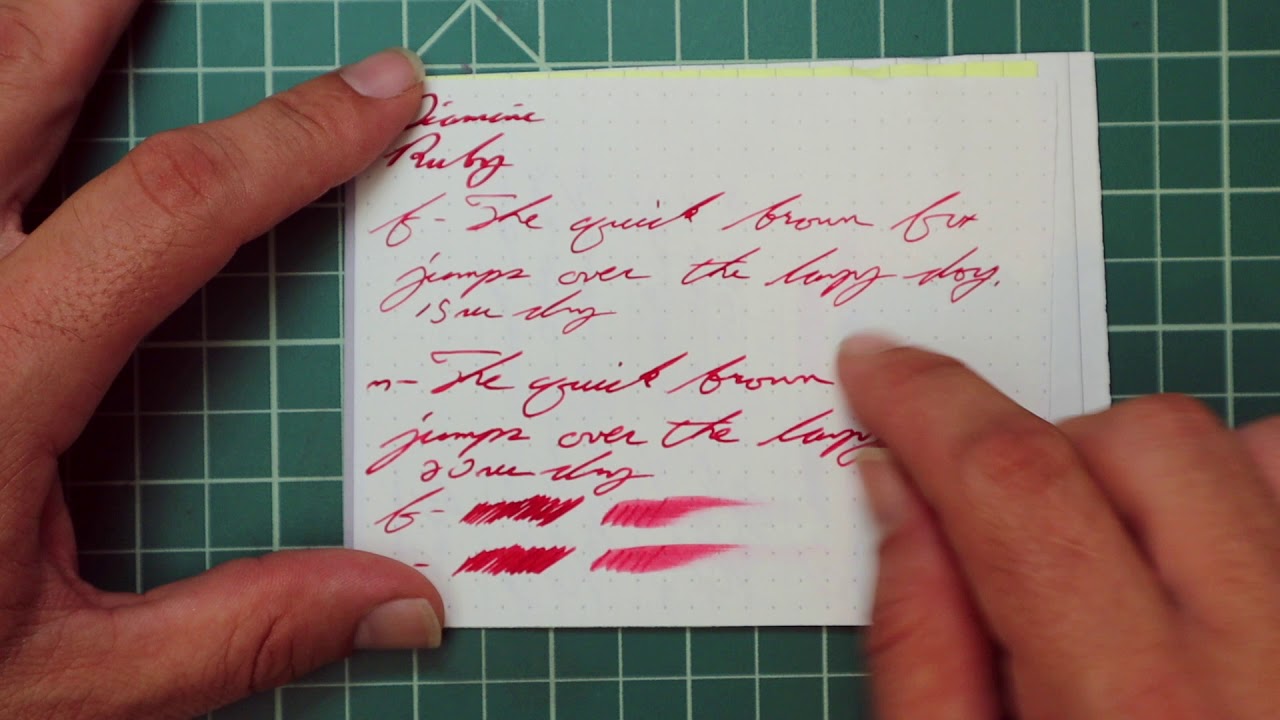 Diamine
Ruby
f- The quick brown fox
jumps over the lazy dog.
15 sec dry
m- The quick brown
jumps over the lazy
20 sec dry
f-
-